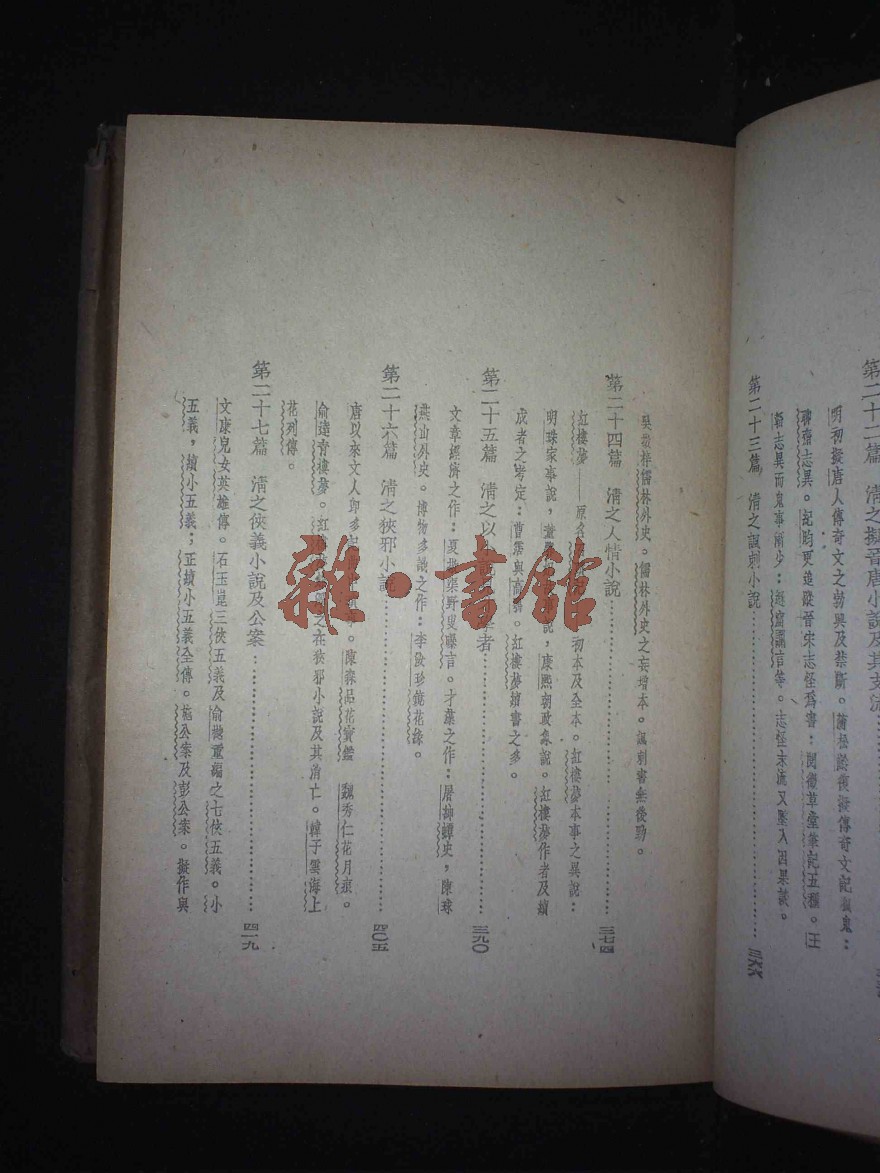 明初擬唐人傳奇文之勃興及禁斷。蒲松齡復擬傳奇文記狐鬼：
聊齋志異。紀昀更追蹤晉宋志怪爲書：閱微草堂筆記五種。王
志異而鬼事漸少：諧言等。志怪末流又墜入因果談。
第二十三篇 清之諷刺小說
吳敬梓儒林外史。儒林外史之妄增本。諷刺書無後勁。
第二十四篇 清之人情小說 三七四
紅樓夢——原名 初本及全本。紅樓夢本事之異說：
明珠家事說， 說，康熙朝政象說。紅樓夢作者及續
成者之考定：曹霑與高鶚。紅樓夢續書之多。
第二十五篇 清之以 者 三九〇
文章經濟之作：夏敬渠野叟曝言。才藻之作：屠紳蟫史，陳球
燕山外史。博物多識之作：李汝珍鏡花緣。
第二十六篇 清之狹邪小說 四〇五
唐以來文人即多 。陳森品花寶鑑 魏秀仁花月痕。
俞達青樓夢。紅 之在狹邪小說及其消亡。韓子雲海上
花列傳。
第二十七篇 清之俠義小說及公案 四一九
文康兒女英雄傳。石玉崑三俠五義及俞樾重編之七俠五義。小
五義，續小五義；正續小五義全傳。施公案及彭公案。擬作與
雜·書館